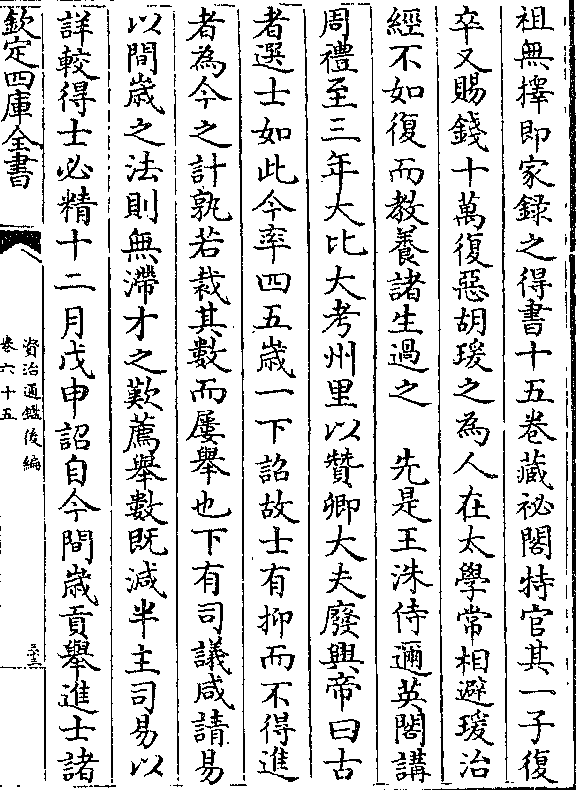 祖無擇即家録之得書十五卷藏祕閣特官其一子復
卒又賜錢十萬復惡胡瑗之為人在太學常相避瑗治
經不如復而教養諸生過之　先是王洙侍邇英閣講
周禮至三年大比大考州里以贊卿大夫廢興帝曰古
者選士如此今率四五歳一下詔故士有抑而不得進
者為今之計孰若裁其數而屢舉也下有司議咸請易
以間歳之法則無滯才之歎薦舉數既減半主司易以
詳較得士必精十二月戊申詔自今間歳貢舉進士諸
欽定四庫全書
資治通鑑後編
卷六十五